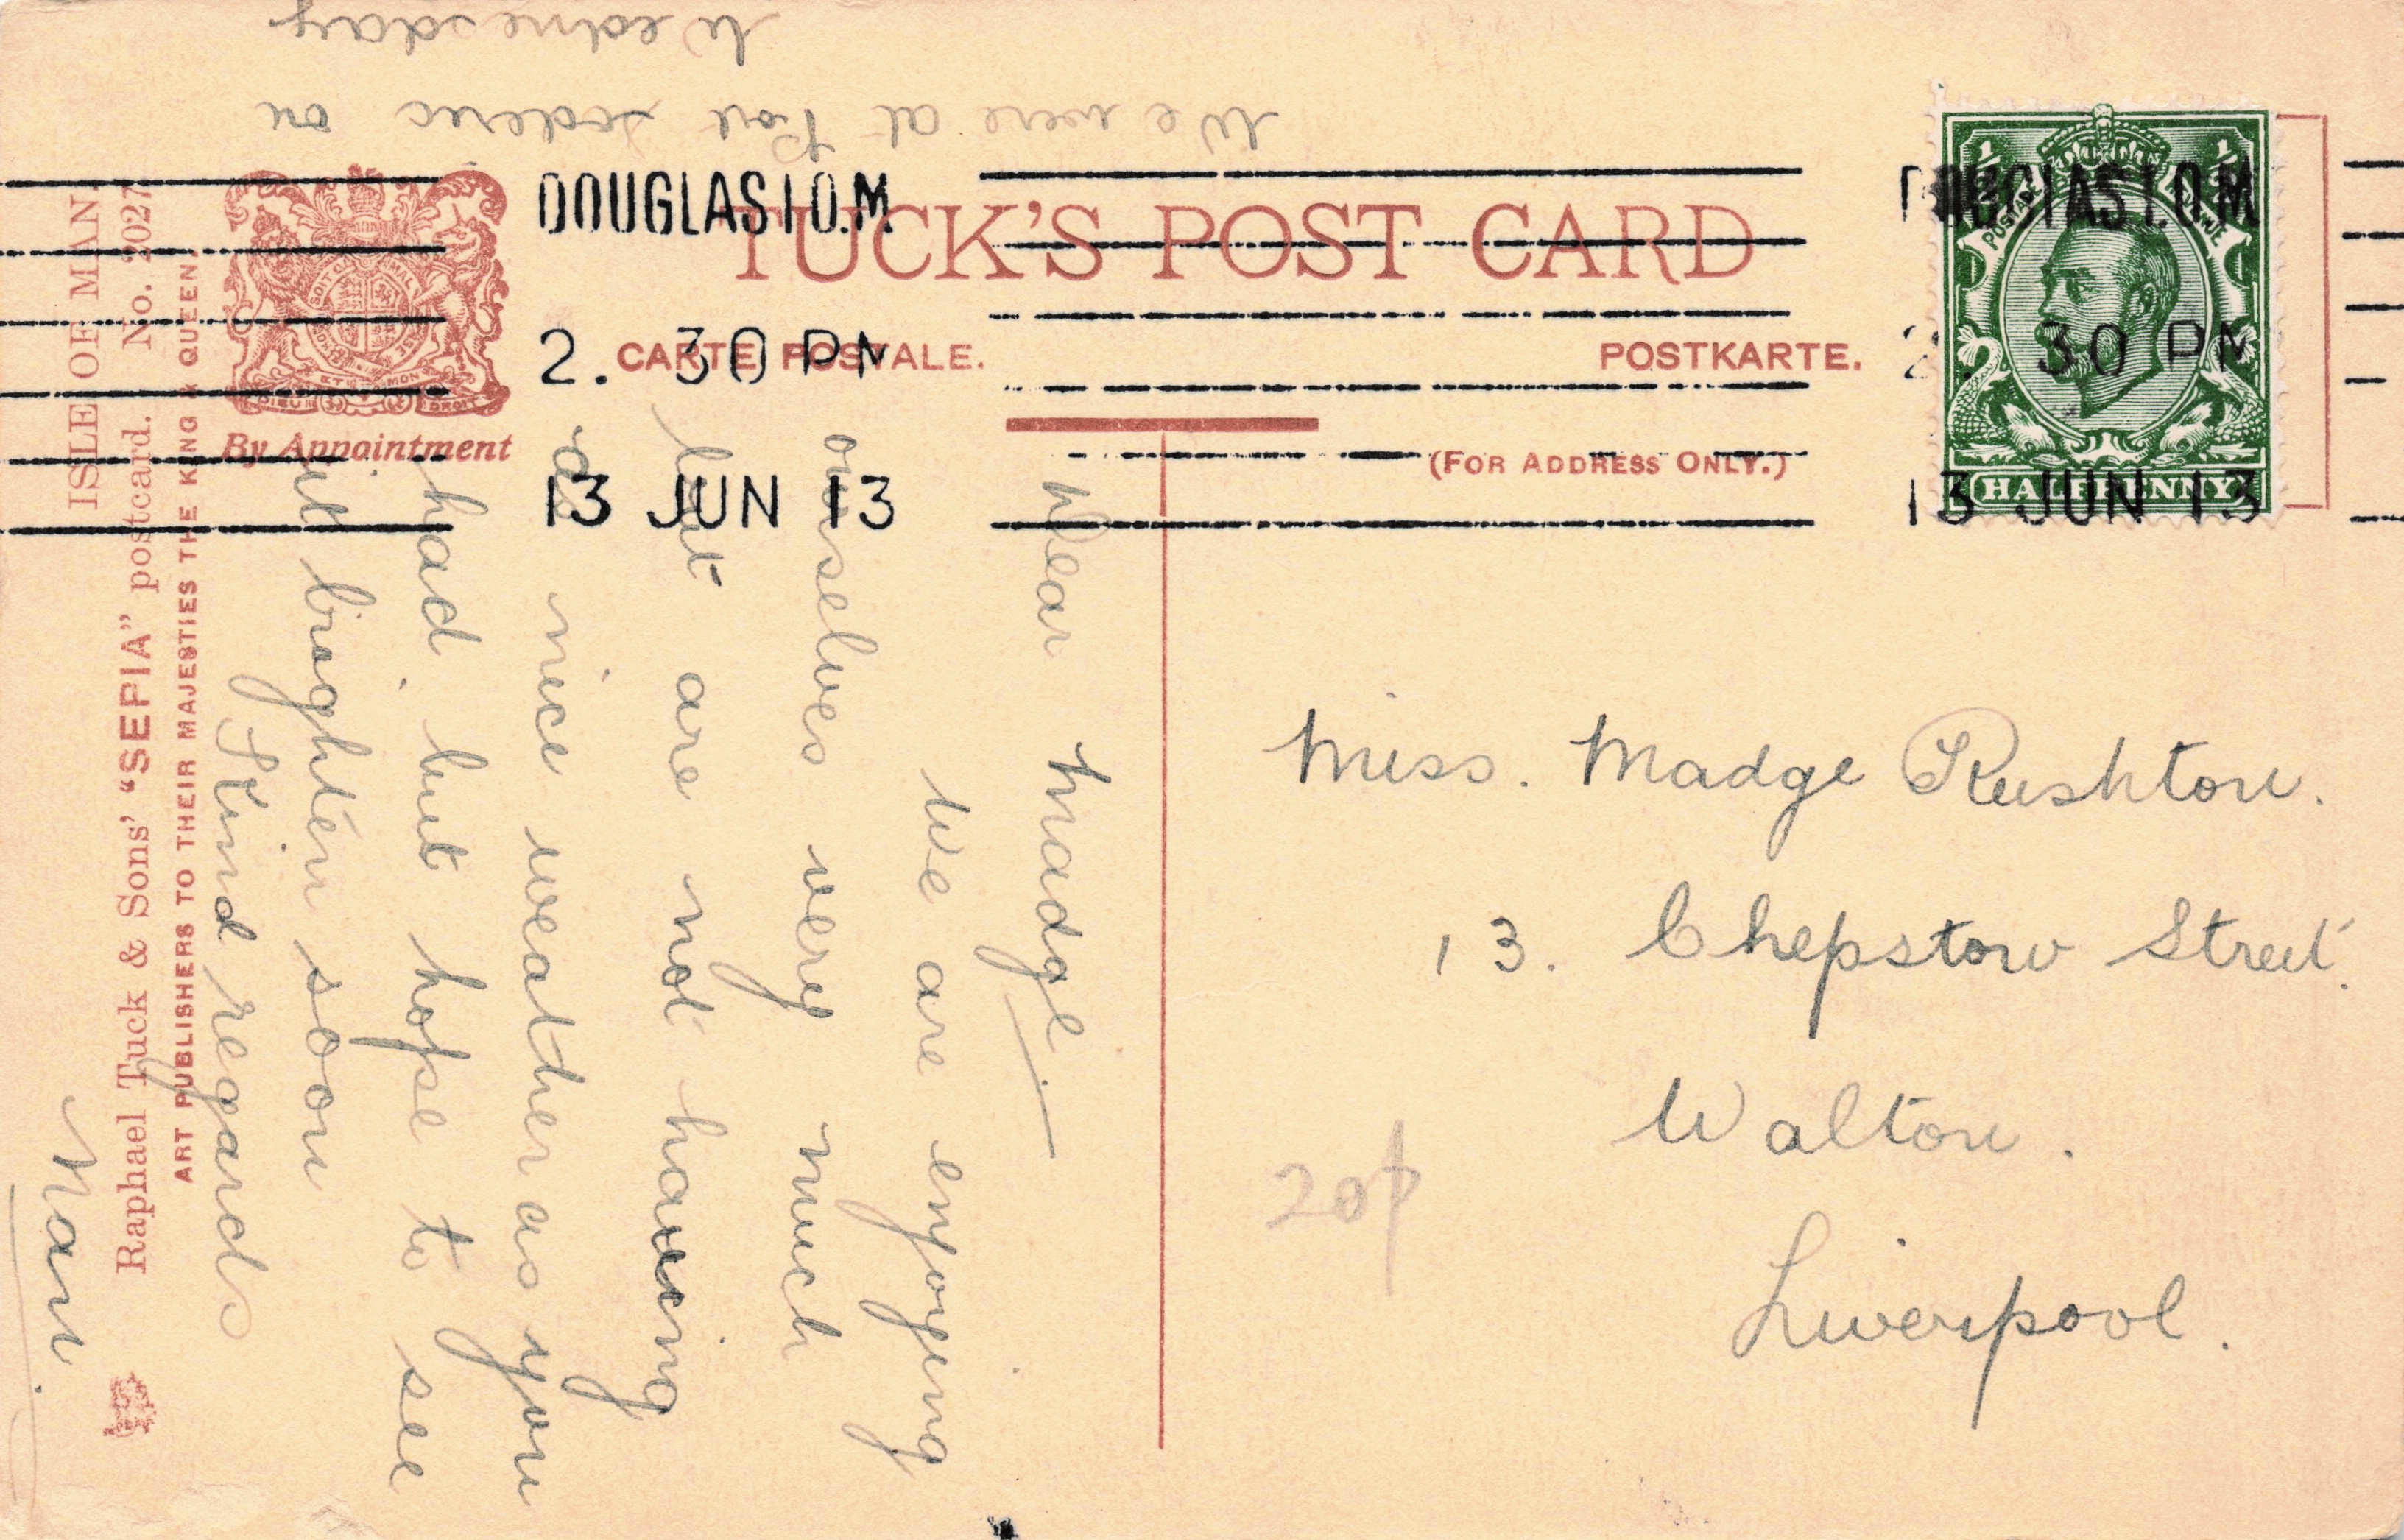 TUCK'S POST CARD
CARTE POSTALE.
POSTKARTE.
(FOR ADDRESS ONLY.)
By Appointment
ISLE OF MAN.
Raphael Tuck & Sons' "SEPIA" postcard. No. 2027
ART PUBLISHERS TO THEIR MAJESTIES THE KING & QUEEN.
DOUGLAS I.O.M.
2. 30 PM
13 JUN 13
DOUGLAS I.O.M
2. 30 PM
13 JUN 13
POSTAGE
HALFPENNY
Dear Madge
We are enjoying
ourselves very much
but are not having
as nice weather as you
had, but hope to see
it brighten soon
Kind regards
Nan.
We were at Port Soderic on
Wednesday
Miss. Madge Rushton.
13. Chepstow Street.
Walton.
Liverpool.
20p